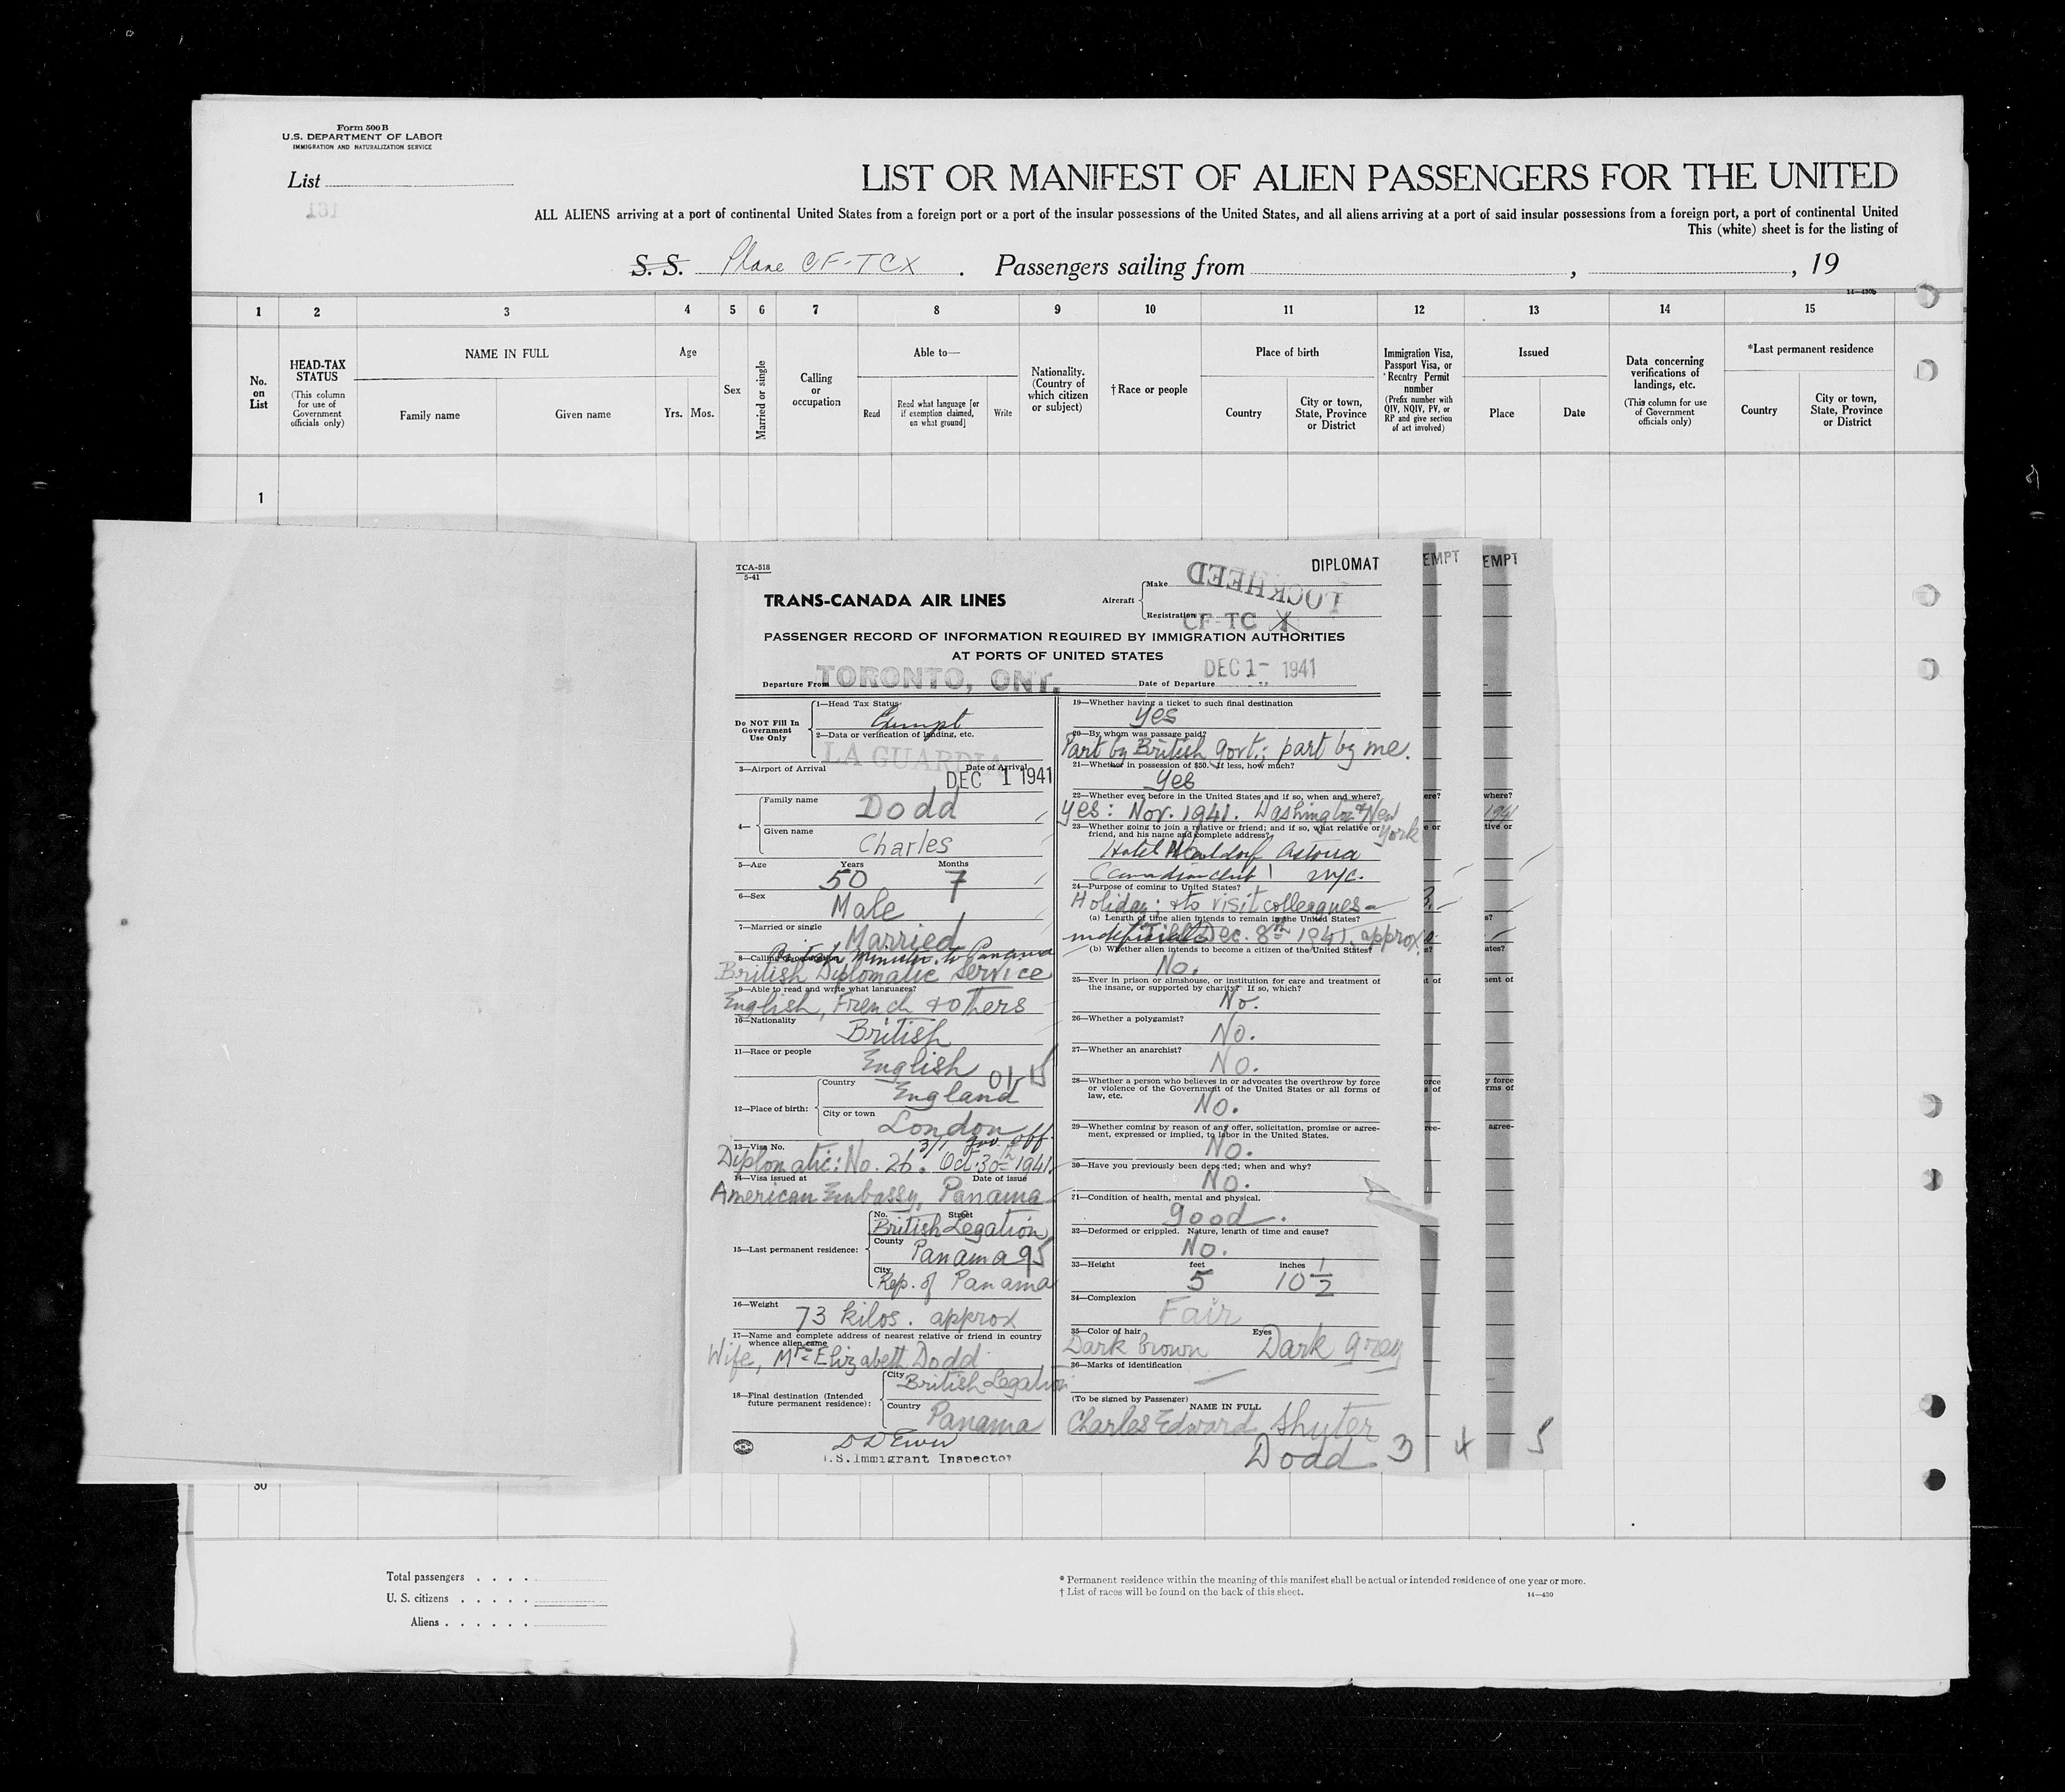 Form 500 B
U.S. DEPARTMENT OF LABOR
IMMIGRATION AND NATURALIZATION SERVICE
List
161
LIST OR MANIFEST OF ALIEN PASSENGERS FOR THE UNITED
ALL ALIENS arriving at a port of continental United States from a foreign port or a port of the insular possessions of the United States, and all aliens arriving at a port of said insular possessions from a foreign port, a port of continental United
This (white) sheet is for the listing of
S. S. Plane CF-TCX . Passengers sailing from , , 19
14—430b
1 2 3 4 5 6 7 8 9 10 11 12 13 14 15
No. on List
HEAD-TAX STATUS
(This column for use of Government officials only)
NAME IN FULL
Family name Given name
Age
Yrs. Mos.
Sex
Married or single
Calling or occupation
Able to—
Read
Read what language [or if exemption claimed, on what ground]
Write
Nationality. (Country of which citizen or subject)
†Race or people
Place of birth
Country
City or town, State, Province or District
Immigration Visa, Passport Visa, or Reentry Permit number
(Prefix number with QIV, NQIV, PV, or RP and give section of act involved)
Issued
Place Date
Data concerning verifications of landings, etc.
(This column for use of Government officials only)
*Last permanent residence
Country
City or town, State, Province or District
1
TCA-518
5-41
DIPLOMAT
EMPT
EMPT
TRANS-CANADA AIR LINES
Aircraft
Make LOCKHEED
Registration CF-TC X
PASSENGER RECORD OF INFORMATION REQUIRED BY IMMIGRATION AUTHORITIES
AT PORTS OF UNITED STATES
Departure From TORONTO, ONT. Date of Departure DEC 1- 1941
Do NOT Fill In Government Use Only
1—Head Tax Status Exempt
2—Data or verification of landing, etc.
LA GUARDIA
3—Airport of Arrival Date of Arrival
DEC 1 1941
4—
Family name Dodd
Given name Charles
5—Age Years 50 Months 7
6—Sex Male
7—Married or single Married
British Minister to Panama
8—Calling or occupation
British Diplomatic Service
9—Able to read and write what languages?
English, French & others
10—Nationality British
11—Race or people English
12—Place of birth:
Country England
City or town London
3/1 gov. off.
13—Visa No.
Diplomatic: No. 26. Oct. 30th 1941.
14—Visa issued at Date of issue
American Embassy, Panama
15—Last permanent residence:
No. Street British Legation
County Panama 95
City Rep. of Panama
16—Weight 73 kilos. approx
17—Name and complete address of nearest relative or friend in country whence alien came
Wife, Mrs Elizabeth Dodd
18—Final destination (Intended future permanent residence):
City British Legation
Country Panama
U.S. Immigrant Inspector
19—Whether having a ticket to such final destination
Yes
20—By whom was passage paid?
Part by British Govt.; part by me.
21—Whether in possession of $50. If less, how much?
Yes
22—Whether ever before in the United States and if so, when and where?
Yes: Nov. 1941. Washington & New York
23—Whether going to join a relative or friend; and if so, what relative or friend, and his name and complete address?
Hotel Waldorf Astoria
Canadian Club NYC.
24—Purpose of coming to United States?
Holiday; & to visit colleagues
(a) Length of time alien intends to remain in the United States?
Till Dec. 8th 1941. approx.
(b) Whether alien intends to become a citizen of the United States?
No.
25—Ever in prison or almshouse, or institution for care and treatment of the insane, or supported by charity? If so, which?
No.
26—Whether a polygamist?
No.
27—Whether an anarchist?
No.
28—Whether a person who believes in or advocates the overthrow by force or violence of the Government of the United States or all forms of law, etc.
No.
29—Whether coming by reason of any offer, solicitation, promise or agreement, expressed or implied, to labor in the United States.
No.
30—Have you previously been deported; when and why?
No.
31—Condition of health, mental and physical.
good.
32—Deformed or crippled. Nature, length of time and cause?
No.
33—Height feet 5 inches 10 1/2
34—Complexion Fair
35—Color of hair Dark brown Eyes Dark grey
36—Marks of identification —
(To be signed by Passenger)
NAME IN FULL
Charles Edward Shuter
Dodd 3 4 5
30
Total passengers . . . .
U. S. citizens . . . . .
Aliens . . . . . .
* Permanent residence within the meaning of this manifest shall be actual or intended residence of one year or more.
† List of races will be found on the back of this sheet.
14—430